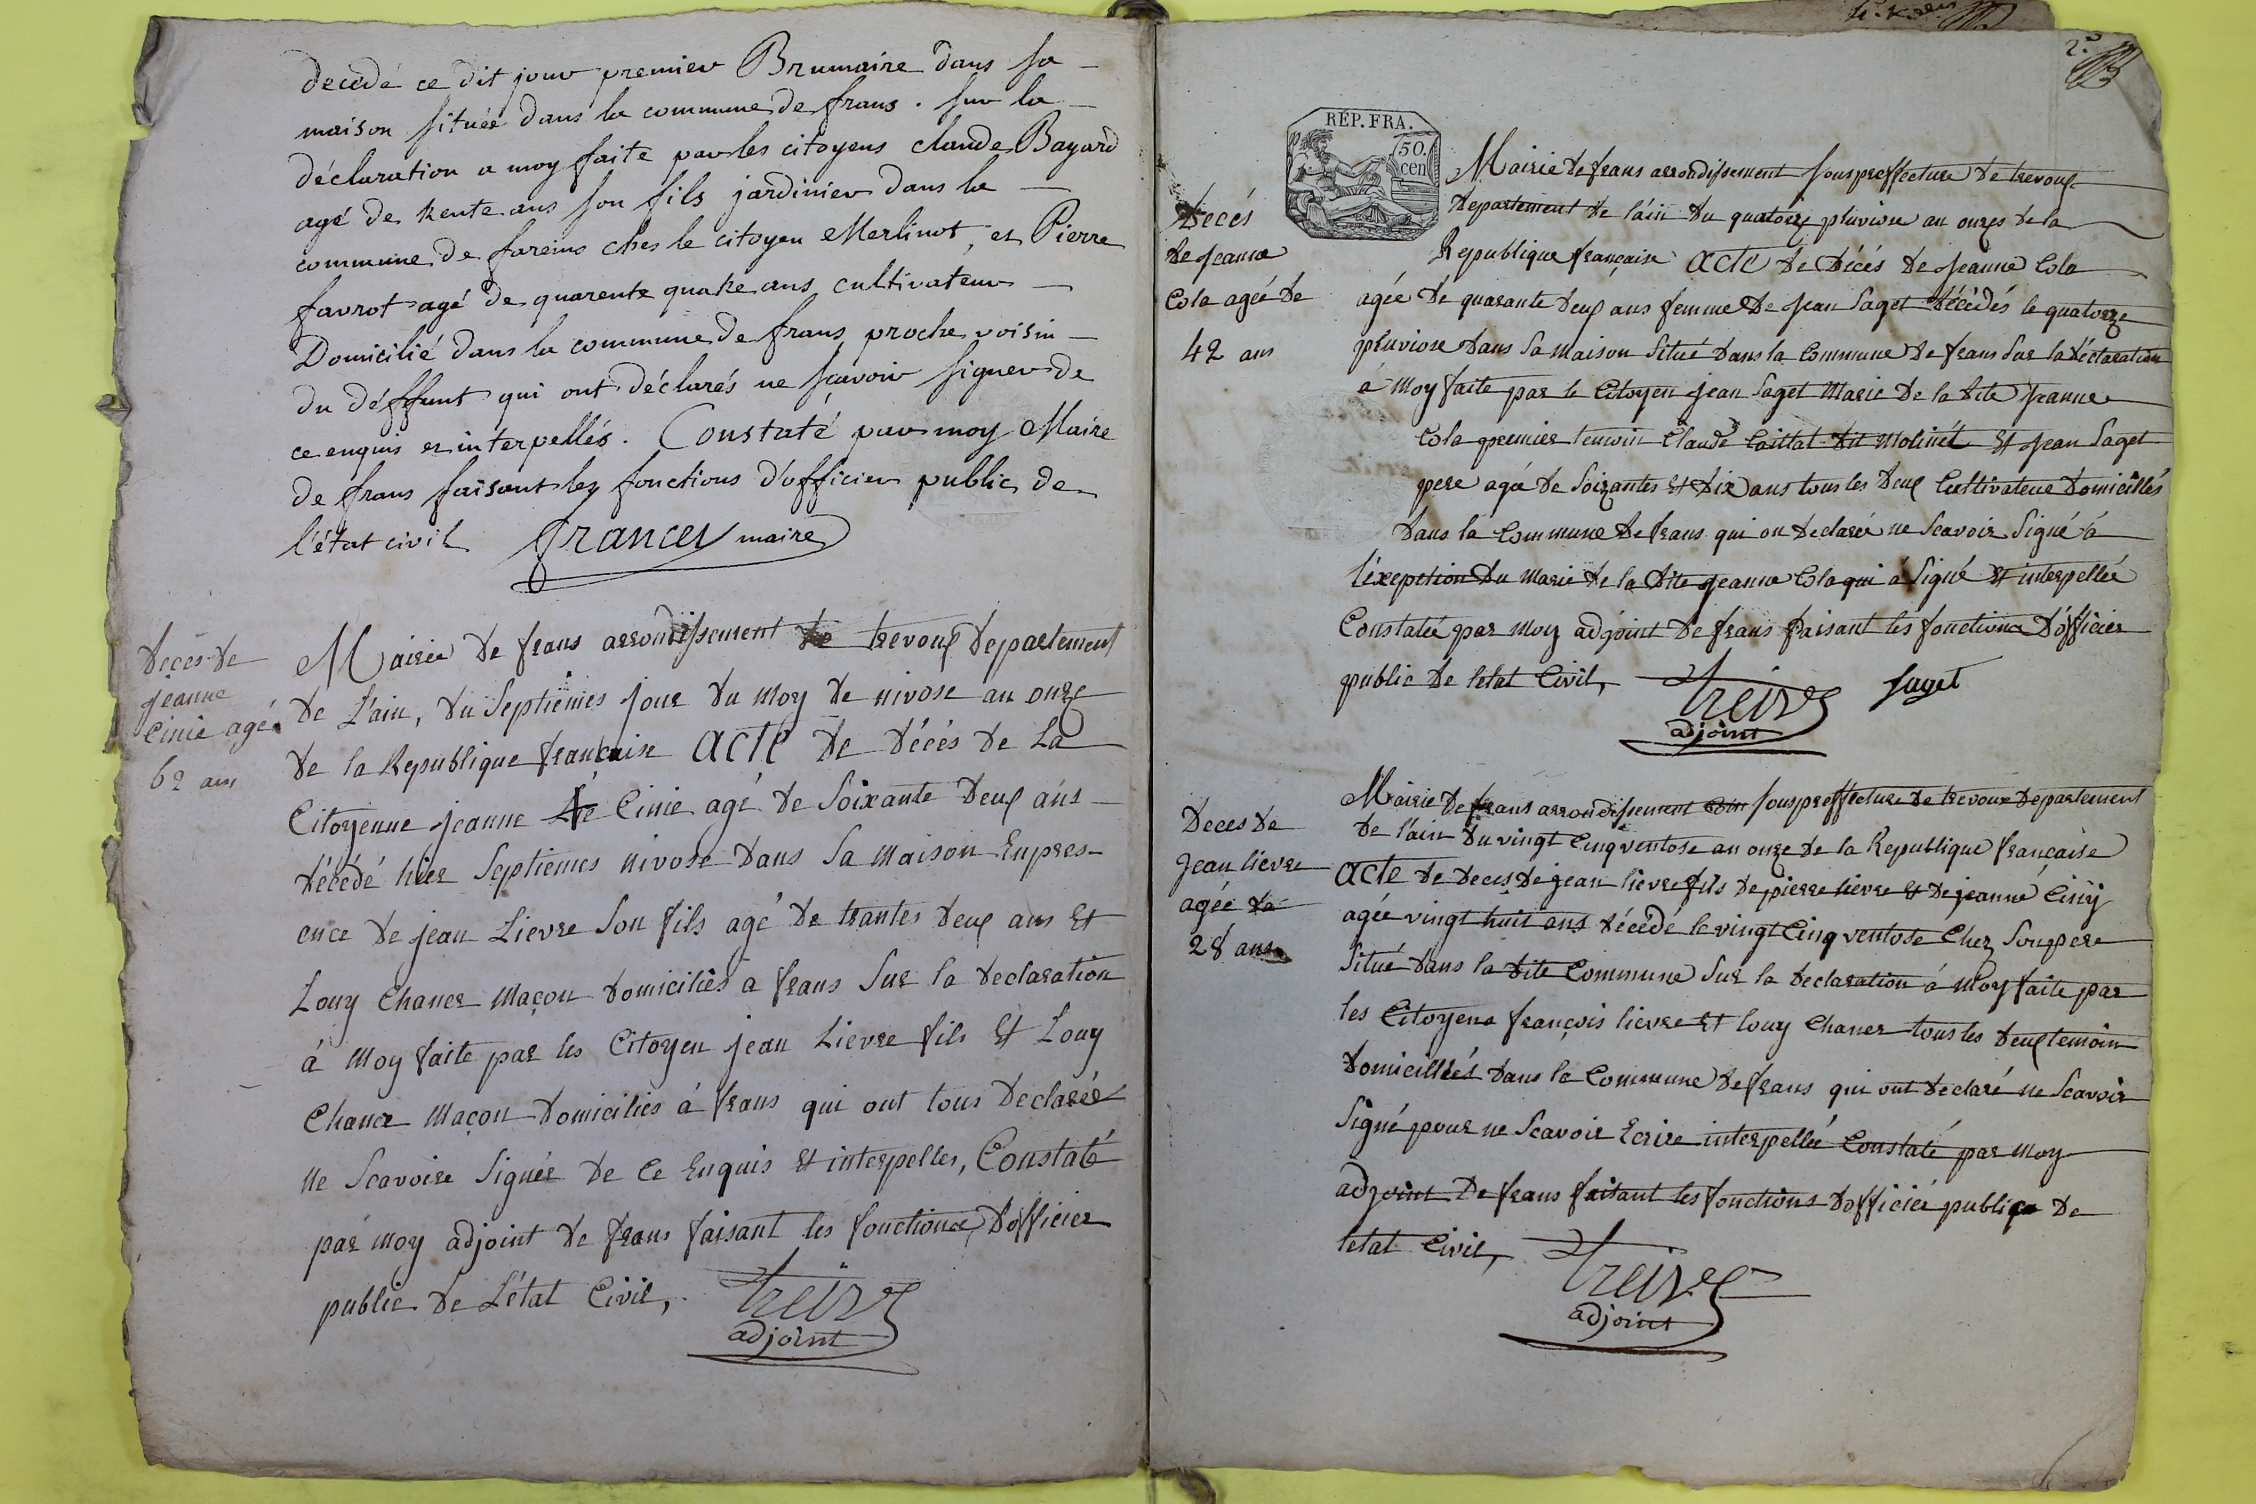 decedé ce dit jour premier Brumaire dans sa
maison située dans la commune de frans. sur la
déclaration a moy faite par les citoyens claude Bayard
agé de trente ans son fils jardinier dans la
commune de fareins ches le citoyen Merlinot, et Pierre
favrot agé de quarente quatre ans cultivateur
Domicilié dans la commune de frans proche voisin
du déffunt qui ont déclarés ne sçavoir signer de
ce enquis et interpellés. Constaté par moy Maire
de frans faisant les fonctions d'officier public de
l'état civil maire
Deces de
jeanne
Cinie agé
62 ans
Mairie de frans arrondissement de trevoux departement
de L'ain, du Septiemes jour du moy de nivose an onze
de la Republique francaise acte de décés de La
Citoyenne jeanne Cinie agé de Soixante deux ans
décédé hier Septiemes nivose dans Sa maison Enpres
ence de jean Lievre Son fils agé de trantes deux ans Et
Louy Chaner Maçon domiciliés a frans Sur la declaration
á moy faite par les Citoyen jean Lievre fils Et Louy
Chaner Maçon domiciliés á frans qui ont tous declarér
ne Scavoire Signér de Ce Enquis Et interpelles, Constaté
par moy adjoint de frans faisant les fonctions d'officier
public de L'état Civil,
adjoint
2e
RÉP. FRA.
50.
cen
Decés
de jeanne
Cola ageé de
42 ans
Mairie de frans arrondissement Souspreffecture de trevoux
departement de l'ain du quatorze pluviose an onzes de la
Republique française acte de décés de jeanne Cola
agée de quarante deux ans femme de jean Saget décédés le quatorze
pluviose dans Sa maison Situé dans la Commune de frans Sur la déclaration
á moy faite par le Citoyen jean Saget Marie de la dite jeanne
Cola premier temoin Claude Caillat dit Molinét Et jean Saget
pere agée de Soixantes Et dix ans tous les deux Cultivateur domicillés
dans la Commune de frans qui on declarée ne Scavoir Signé á
l'éxeption du Marie de la dite jeanne Cola qui á Signé Et interpellée
Constatée par moy adjoint de frans faisant les fonctions d'officier
public de letat Civil,
Saget
adjoint
Deces de
jean lievre
agée de
28 ans
Mairie de frans arrondissement Souspreffecture de trevoux departement
de l'ain du vingt Cinq ventose an onze de la Republique française
acte de deces de jean lievre fils de pierre lievre Et de jeanne Ciny
agée vingt huit ans décédé le vingt Cinq ventose Chez Son pere
Situé dans la dite Commune Sur la declaration á moy faite par
les Citoyens françois lievre Et louy Chaner tous les deux temoin
domicilliés dans la Commune de frans qui ont declaré ne Scavoir
Signé pour ne Scavoir Ecrire interpellée Constaté par moy
adjoint de frans faisant les fonctions d'officiér publique de
letat Civil,
adjoint